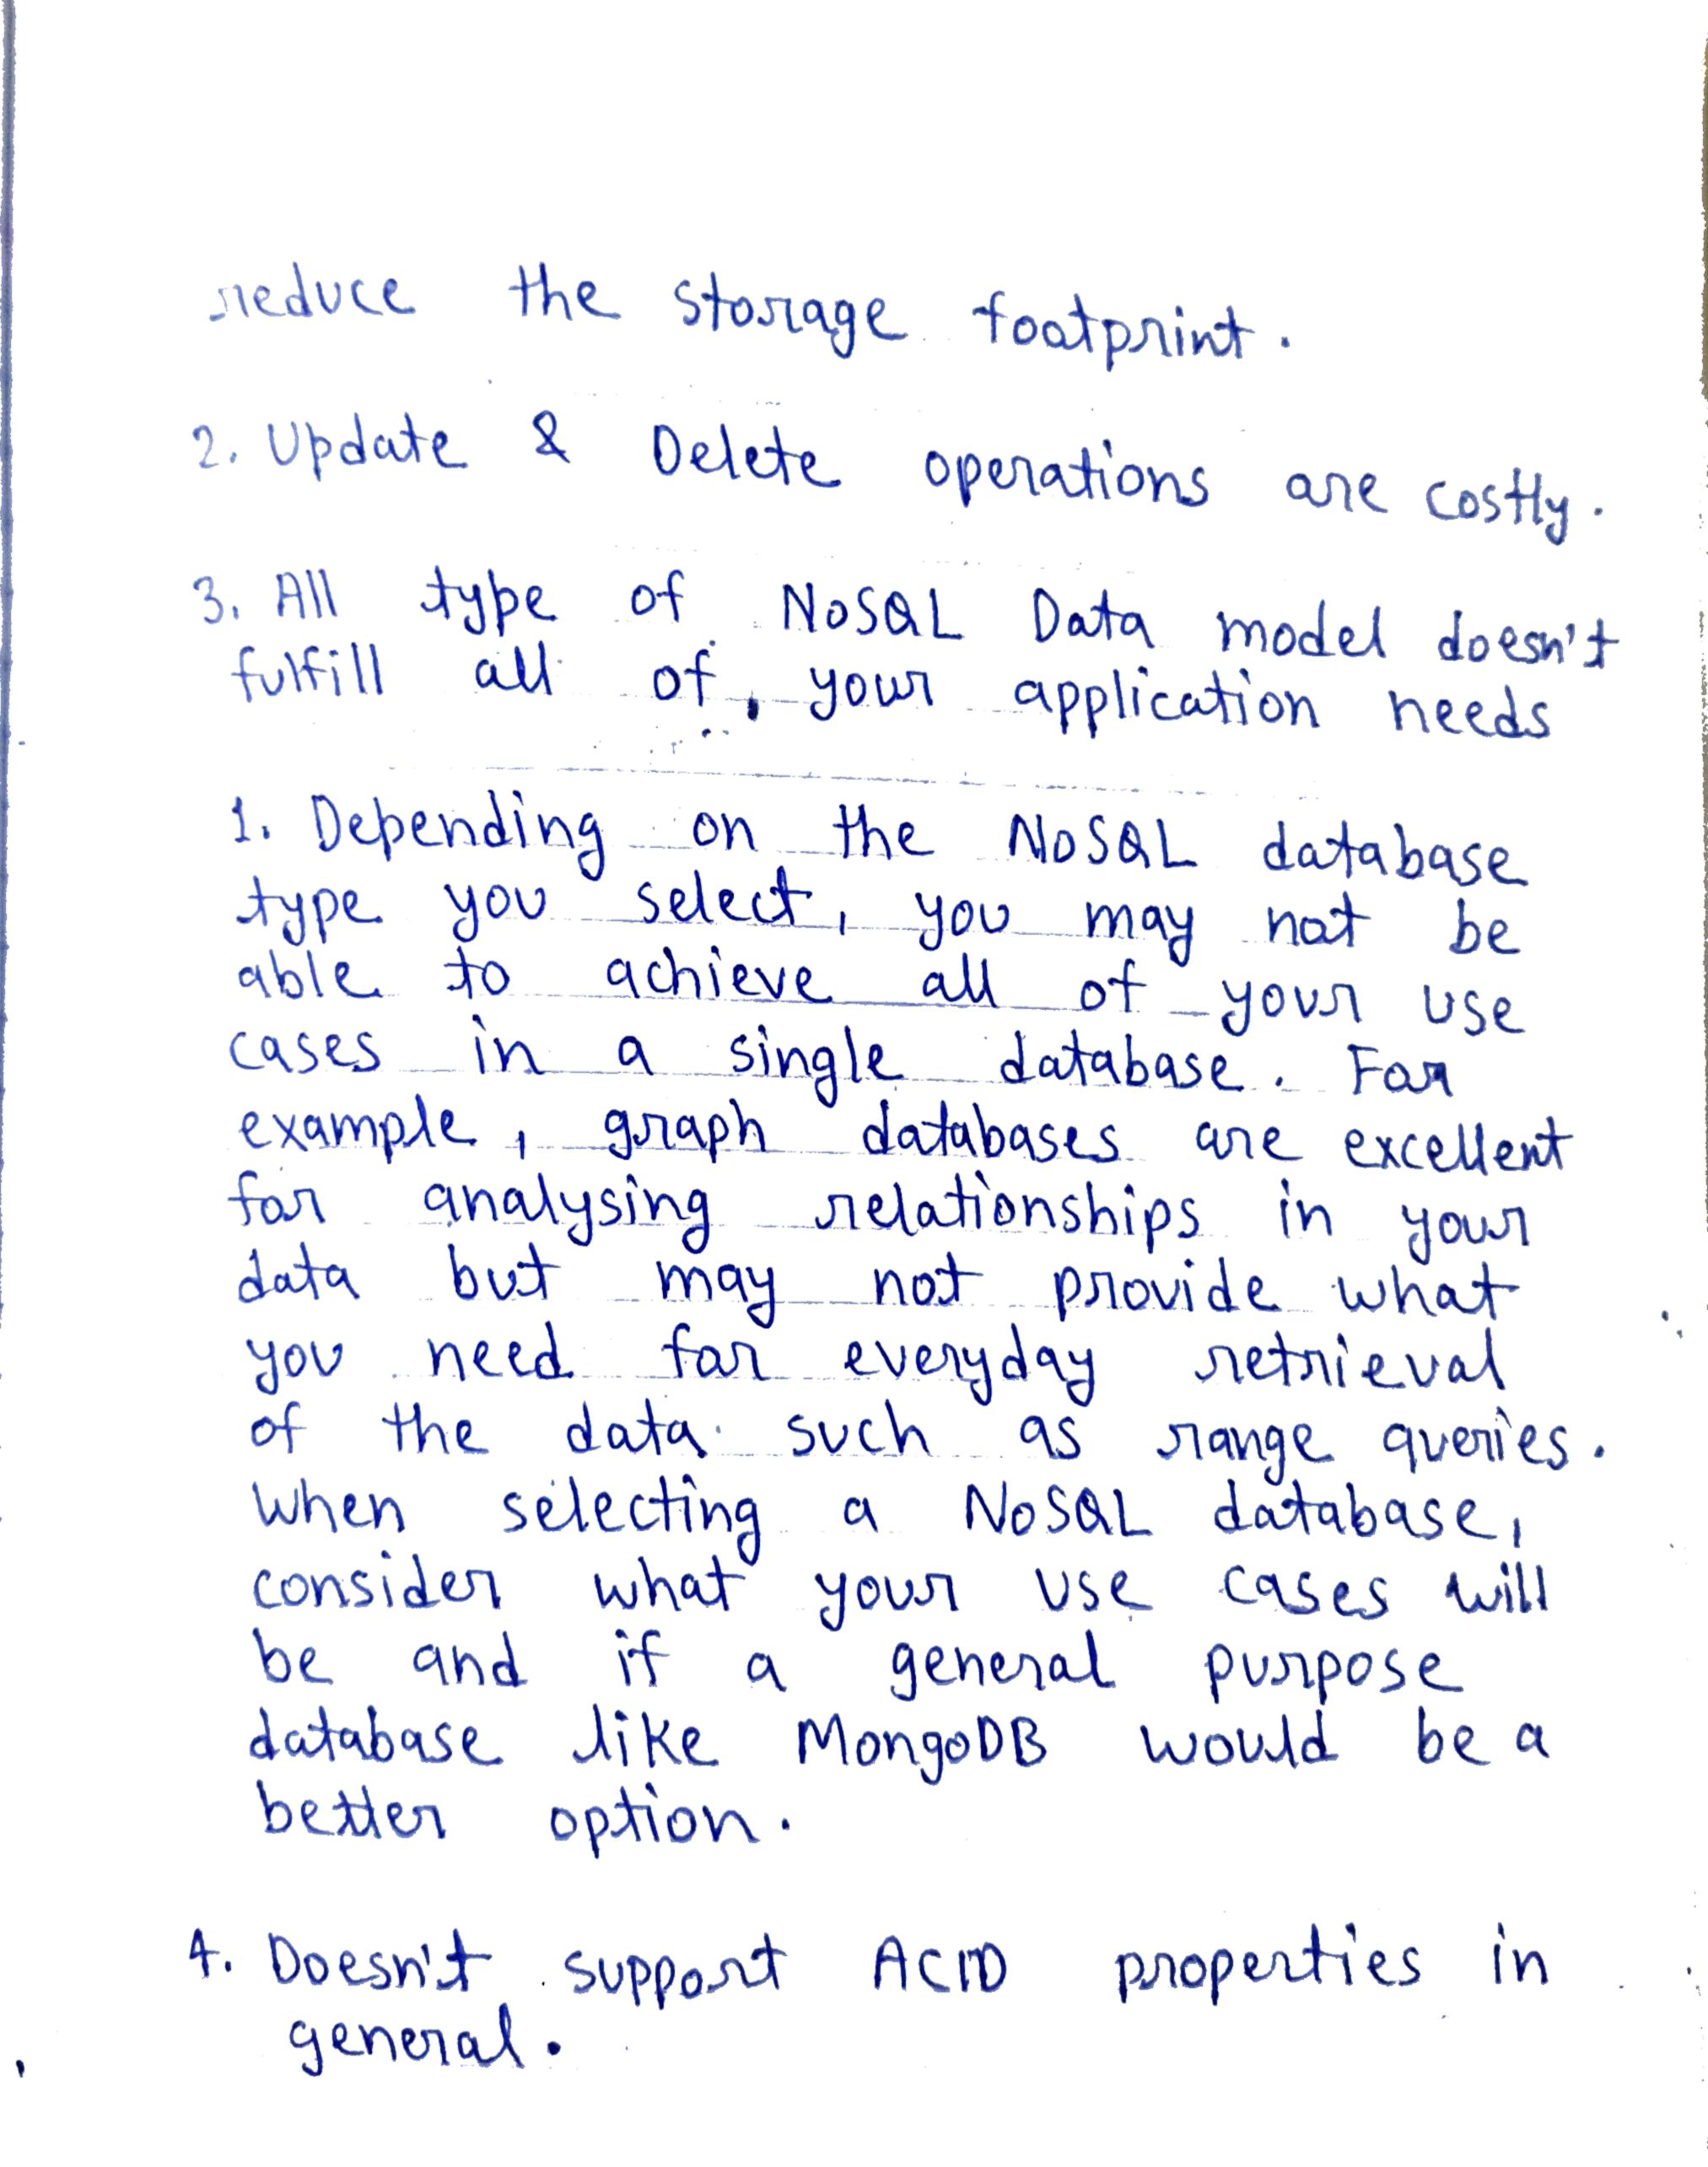 reduce the storage footprint.
2. Update & Delete operations are costly.
3. All type of NoSQL Data model doesn't
fulfill all of your application needs
1. Depending on the NoSQL database
type you select, you may not be
able to achieve all of your use
cases in a single database. For
example, graph databases are excellent
for analysing relationships in your
data but may not provide what
you need for everyday retrieval
of the data such as range queries.
When selecting a NoSQL database,
consider what your use cases will
be and if a general purpose
database like MongoDB would be a
better option.
4. Doesn't support ACID properties in
general.